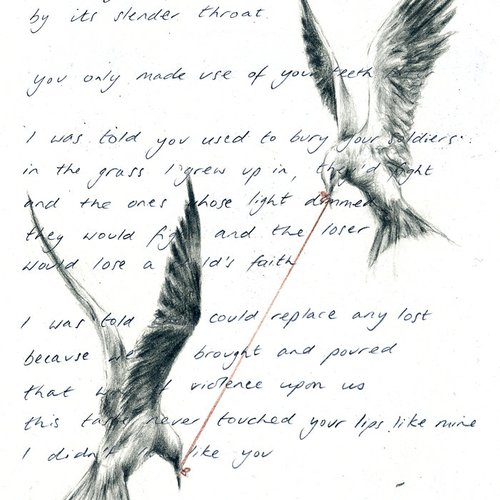 by its slender throat.
you only made use of your teeth
I was told you used to bury your soldiers
in the grass I grew up in, they'd fight
and the ones whose light dimmed
they would fight and the loser
would lose a child's faith
I was told could replace any lost
because we brought and poured
that would violence upon us
this taste never touched your lips like mine
I didn't like you